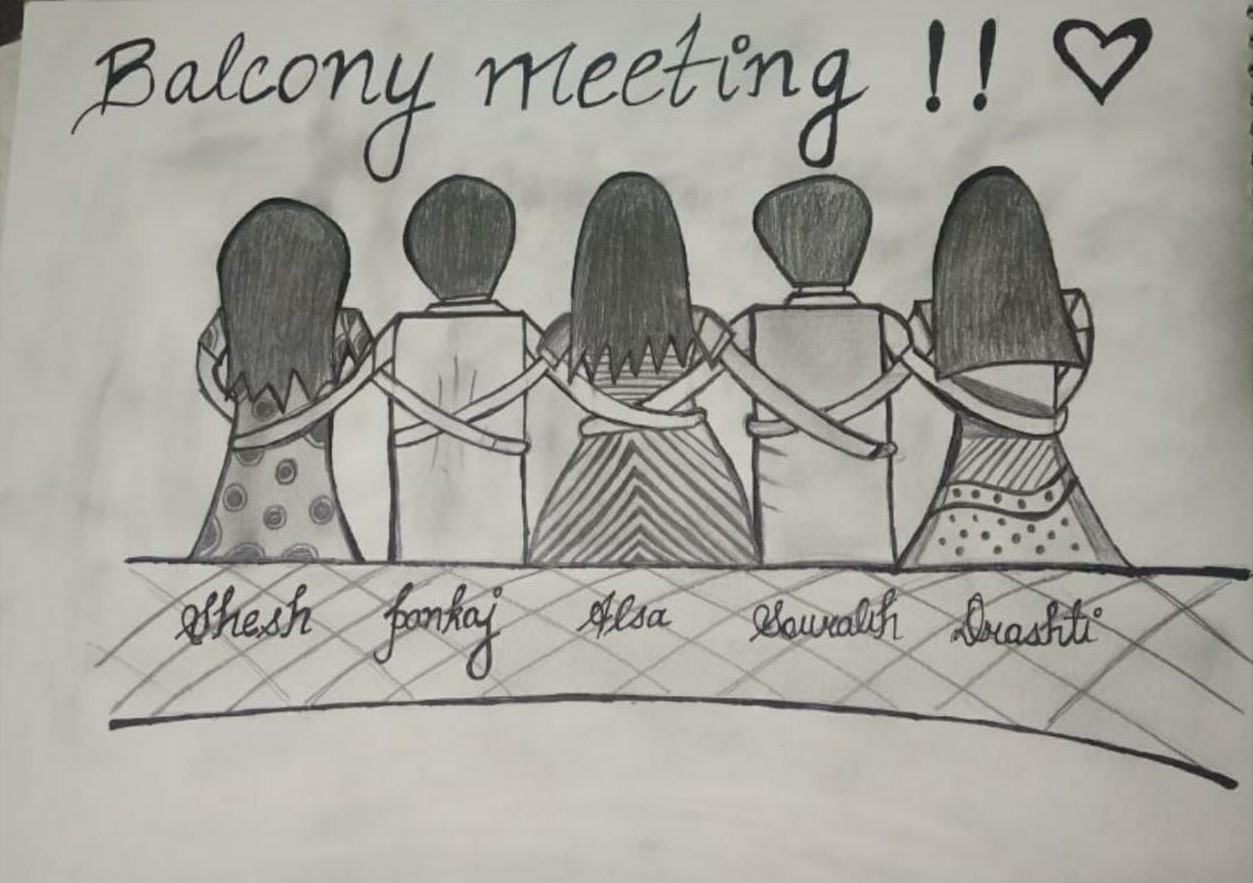 Balcony meeting !! ♡
Shesh pankaj Alsa Sourabh Drashti